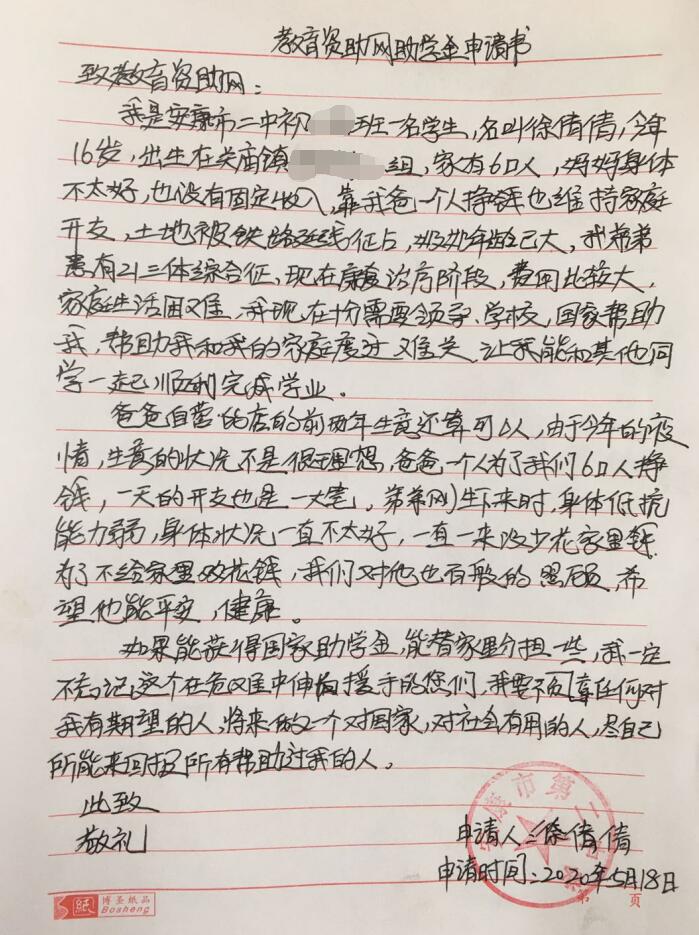 教育资助网助学金申请书
致教育资助网：
我是安康市二中初 班一名学生，名叫徐倩倩，今年
16岁，出生在关庙镇 组，家有6口人，妈妈身体
不太好，也没有固定收入，靠我爸一个人挣钱也维持家庭
开支，土地被铁路延线征占，奶奶年龄已大，我弟弟
患有21三体综合征，现在康复治疗阶段，费用比较大，
家庭生活困难，我现在十分需要领导、学校、国家帮助
我，帮助我和我的家庭度过难关，让我能和其他同
学一起顺利完成学业。
爸爸自营的店的前两年生意还算可以，由于今年的疫
情，生意的状况不是很理想，爸爸一个人为了我们6口人挣
钱，一天的开支也是一大笔，弟弟刚生下来时，身体低抗
能力弱，身体状况一直不太好，一直一来没少花家里钱
为了不给家里 花钱，我们对他也百般的照顾，希
望他能平安，健康。
如果能获得国家助学金，能替家里分担一些，我一定
不忘记这个在危难中伸向援手的您们，我要不负 任何对
我有期望的人，将来做一个对国家，对社会有用的人，尽自己
所能来回报所有帮助过我的人。
此致
敬礼
申请人：徐倩倩
申请时间：2020年5月18日
市第二
博圣纸品
Bosheng
纸
页